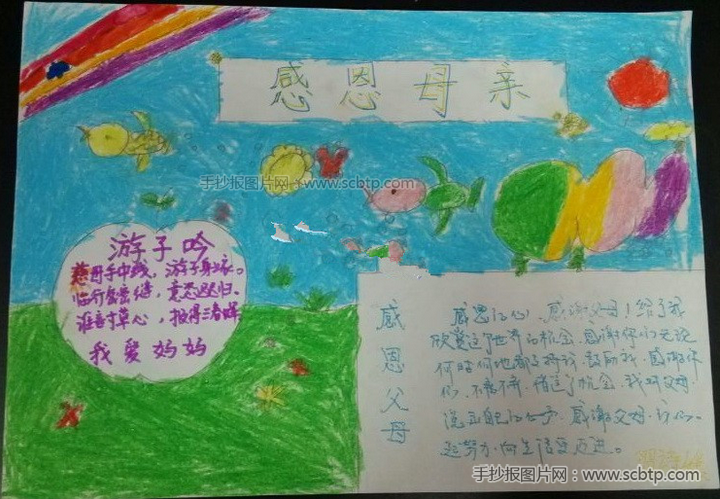 感恩母亲
手抄报图片网：www.scbtp.com
游子吟
慈母手中线，游子身上衣。
临行密密缝，意恐迟迟归。
谁言寸草心，报得三春晖
我爱妈妈
感恩父母
感恩的心，感谢父母！给了我
欣赏这个世界的机会，感谢你们无论
何时何地都支持我，鼓励我，感谢你
们，不
借这个机会，我对父母
说出自己的心声，感谢父母，
起努力，向生活更迈进。
手抄报图片网：www.scbtp.com